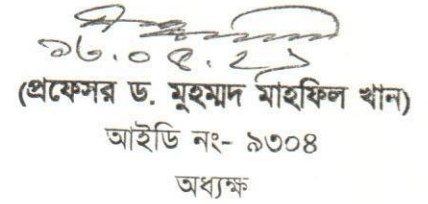 (প্রফেসর ড. মুহম্মদ মাহফিল খান)
আইডি নং- ৯৩০৪
অধ্যক্ষ